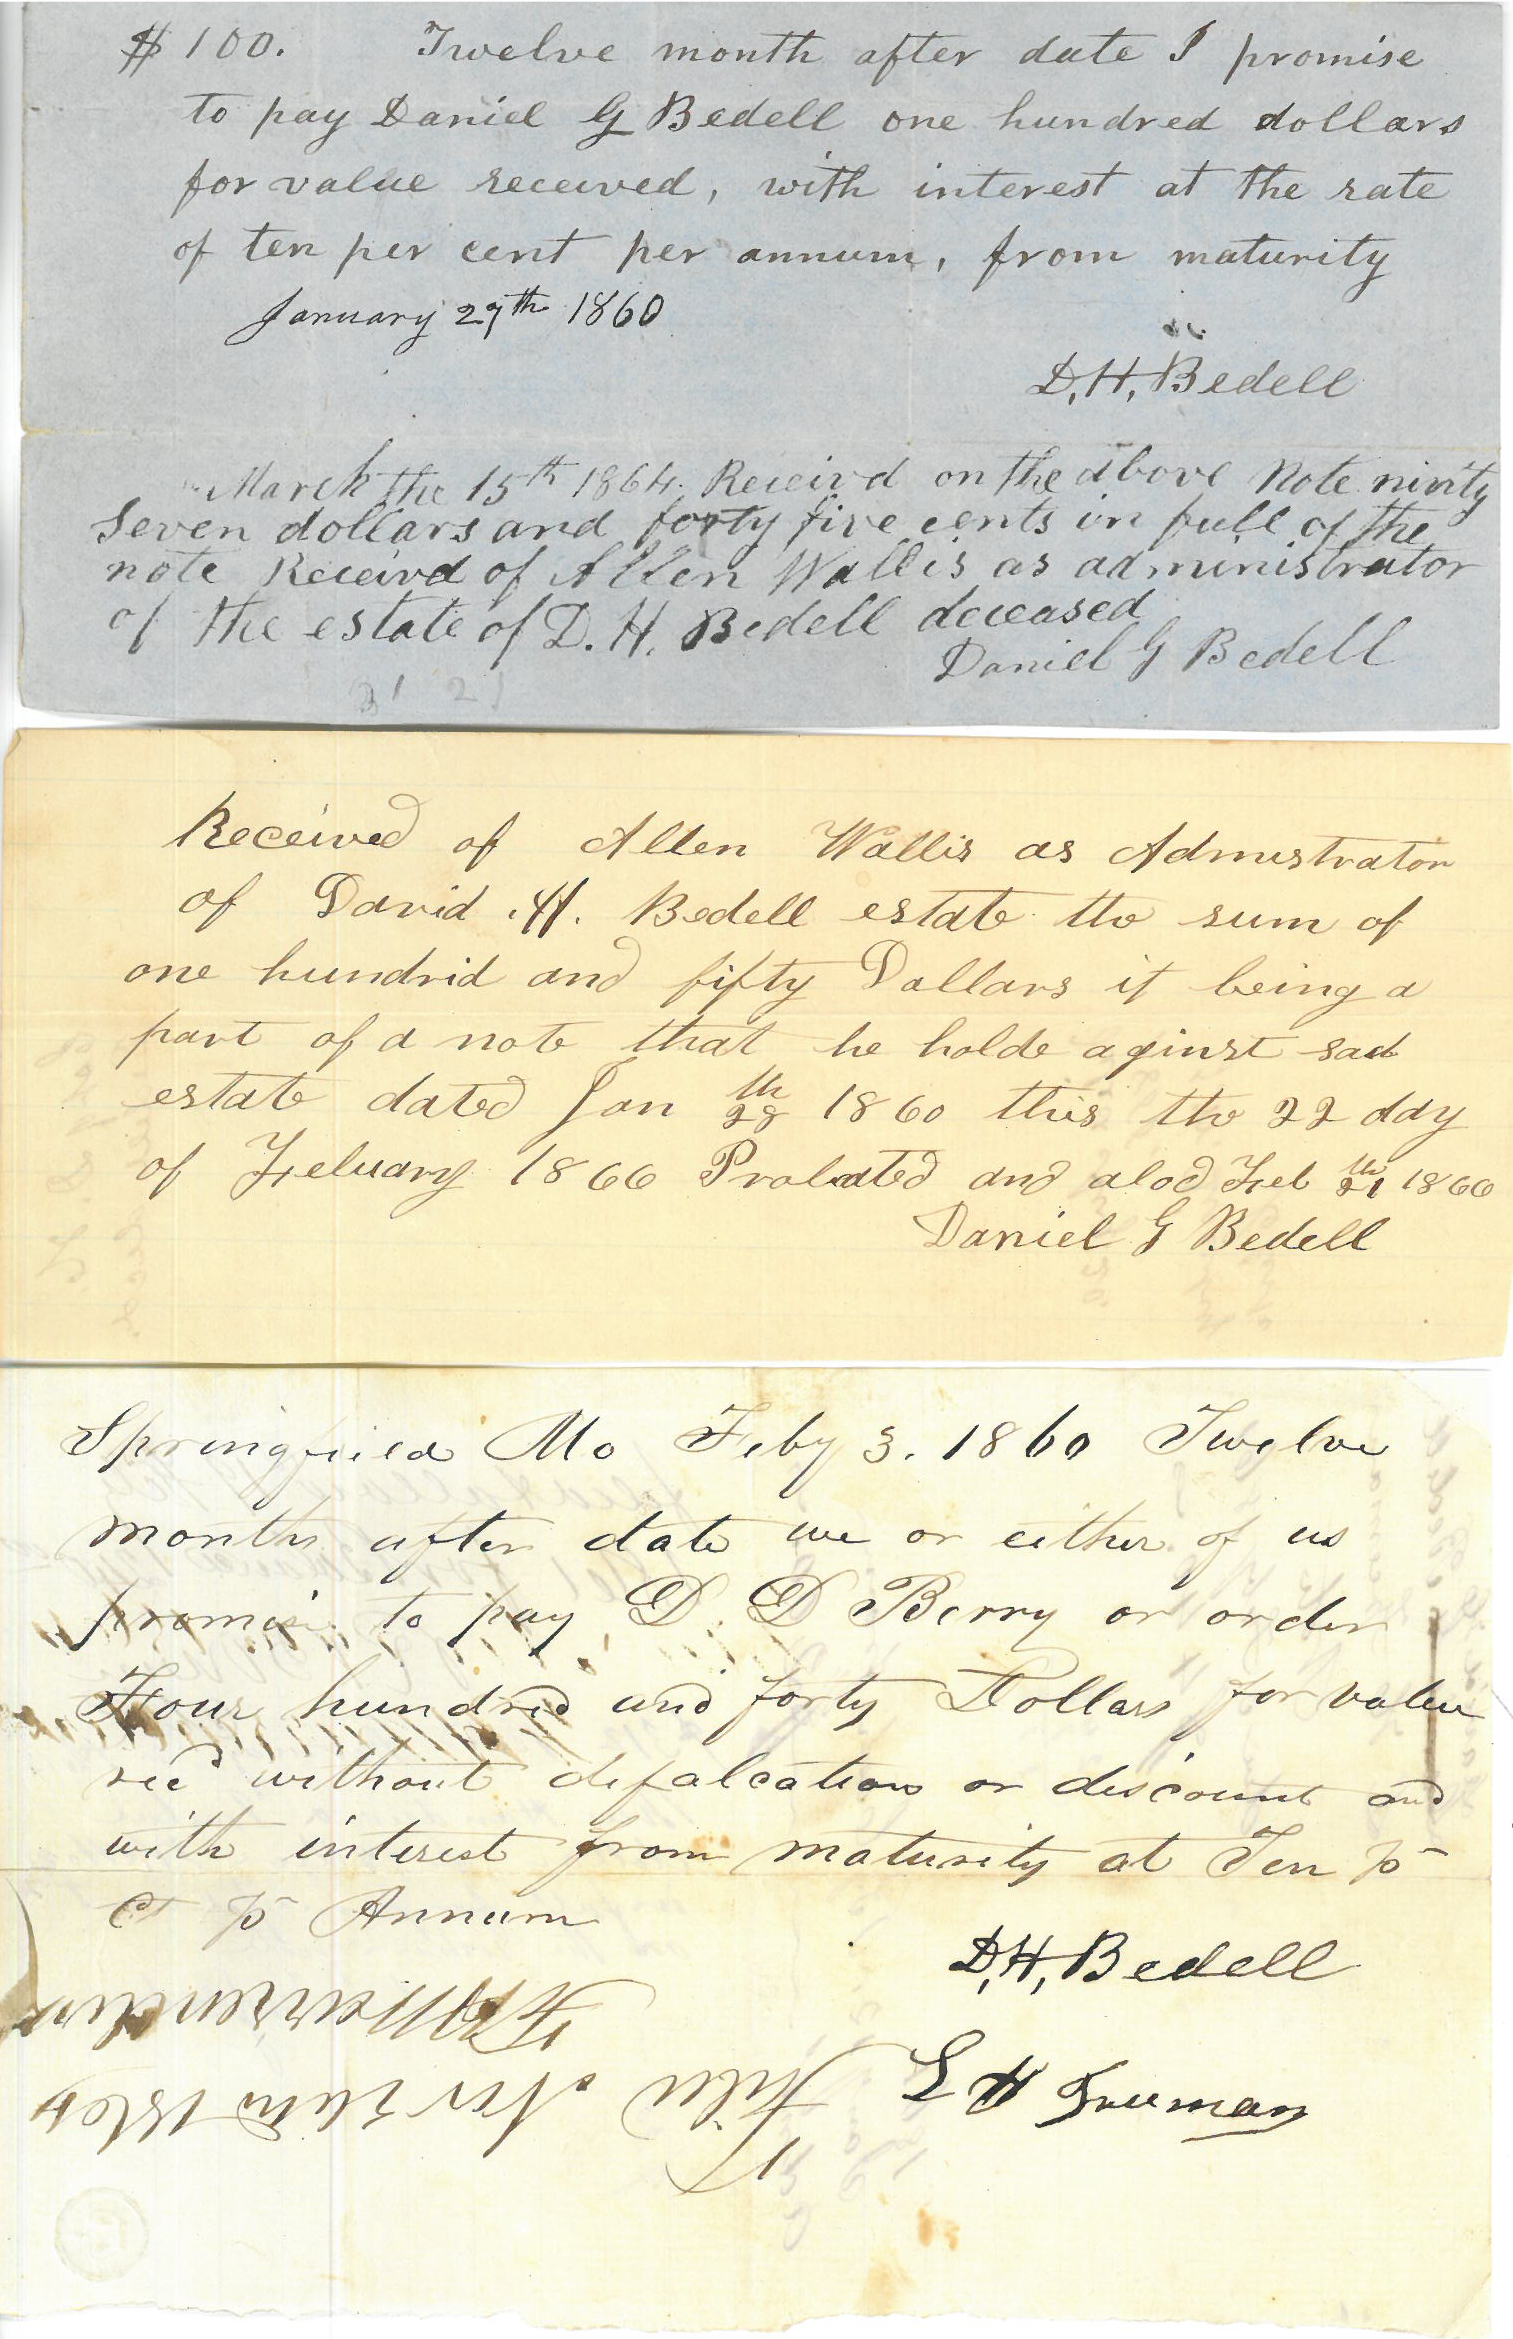 $ 100. Twelve month after date I promise
to pay Daniel G Bedell one hundred dollars
for value received, with interest at the rate
of ten per cent per annum, from maturity
January 27th 1860
D. H. Bedell
March the 15th 1864. Receivd on the above Note ninty
Seven dollars and forty five cents in full of the
note Receivd of Allen Wallis as administrator
of the estate of D. H. Bedell deceased
Daniel G Bedell
Received of Allen Wallis as Admistrator
of David H. Bedell estate the sum of
one hundrid and fifty Dollars it being a
part of a note that he holde aginst sad
estate dated Jan 28th 1860 this the 22 day
of Febuary 1866 Probated and alod Feb 21th 1866
Daniel G Bedell
Springfield Mo Feby 3. 1860 Twelve
months after date we or either of us
promise to pay D. D Berry or order
Four hundred and forty Dollars for value
recd without defalcation or discount and
with interest from maturity at Ten p
Ct p Annum
D. H. Bedell
S H Freeman
Filed Nov